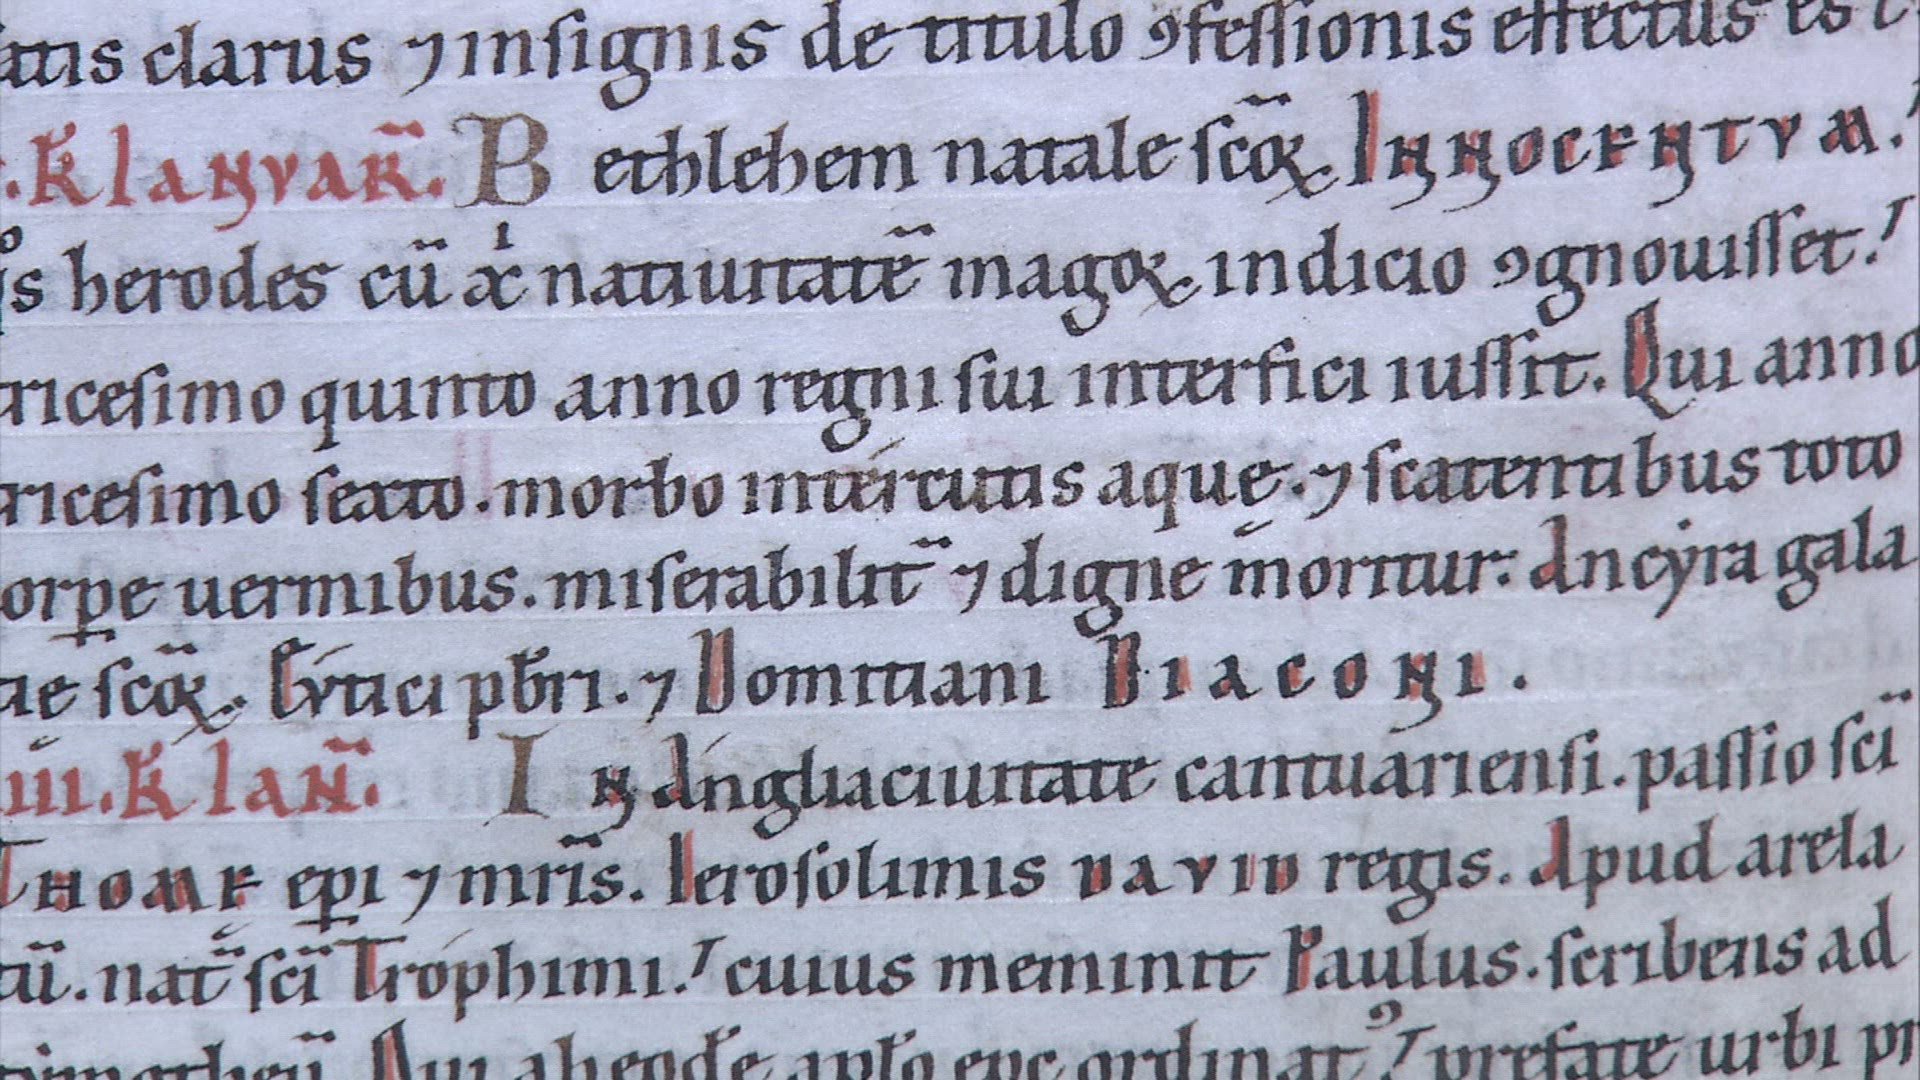 atis clarus ⁊ insignis de titulo ꝯfessionis effectus est
.k̄l ianuar̄. Bethlehem natale scōꝝ Innocentum.
qͦs herodes cū xͥ natiuitatē magoꝝ indicio ꝯgnouisset.
tricesimo quinto anno regni sui interfici iussit. Qui anno
tricesimo sexto. morbo intercutis aquę. ⁊ scatentibus toto
corꝑe uermibus. miserabilit̄ ⁊ digne moritur. Ancyra gala
tię scōꝝ. Eutici p̄bri. ⁊ Domitiani Diaconi.
iiii. k̄l ian̄. In Anglia ciuitate cantuariensi. passio scī
Thome ep̄i ⁊ mr̄is. Ierosolimis david regis. Apud arela
tū. nat̄ scī Trophimi. cuius meminit Paulus. scribens ad
timotheū. Qui ab eod̄e ap̄lo ep̄c ordinatꝰ prefate urbi pri